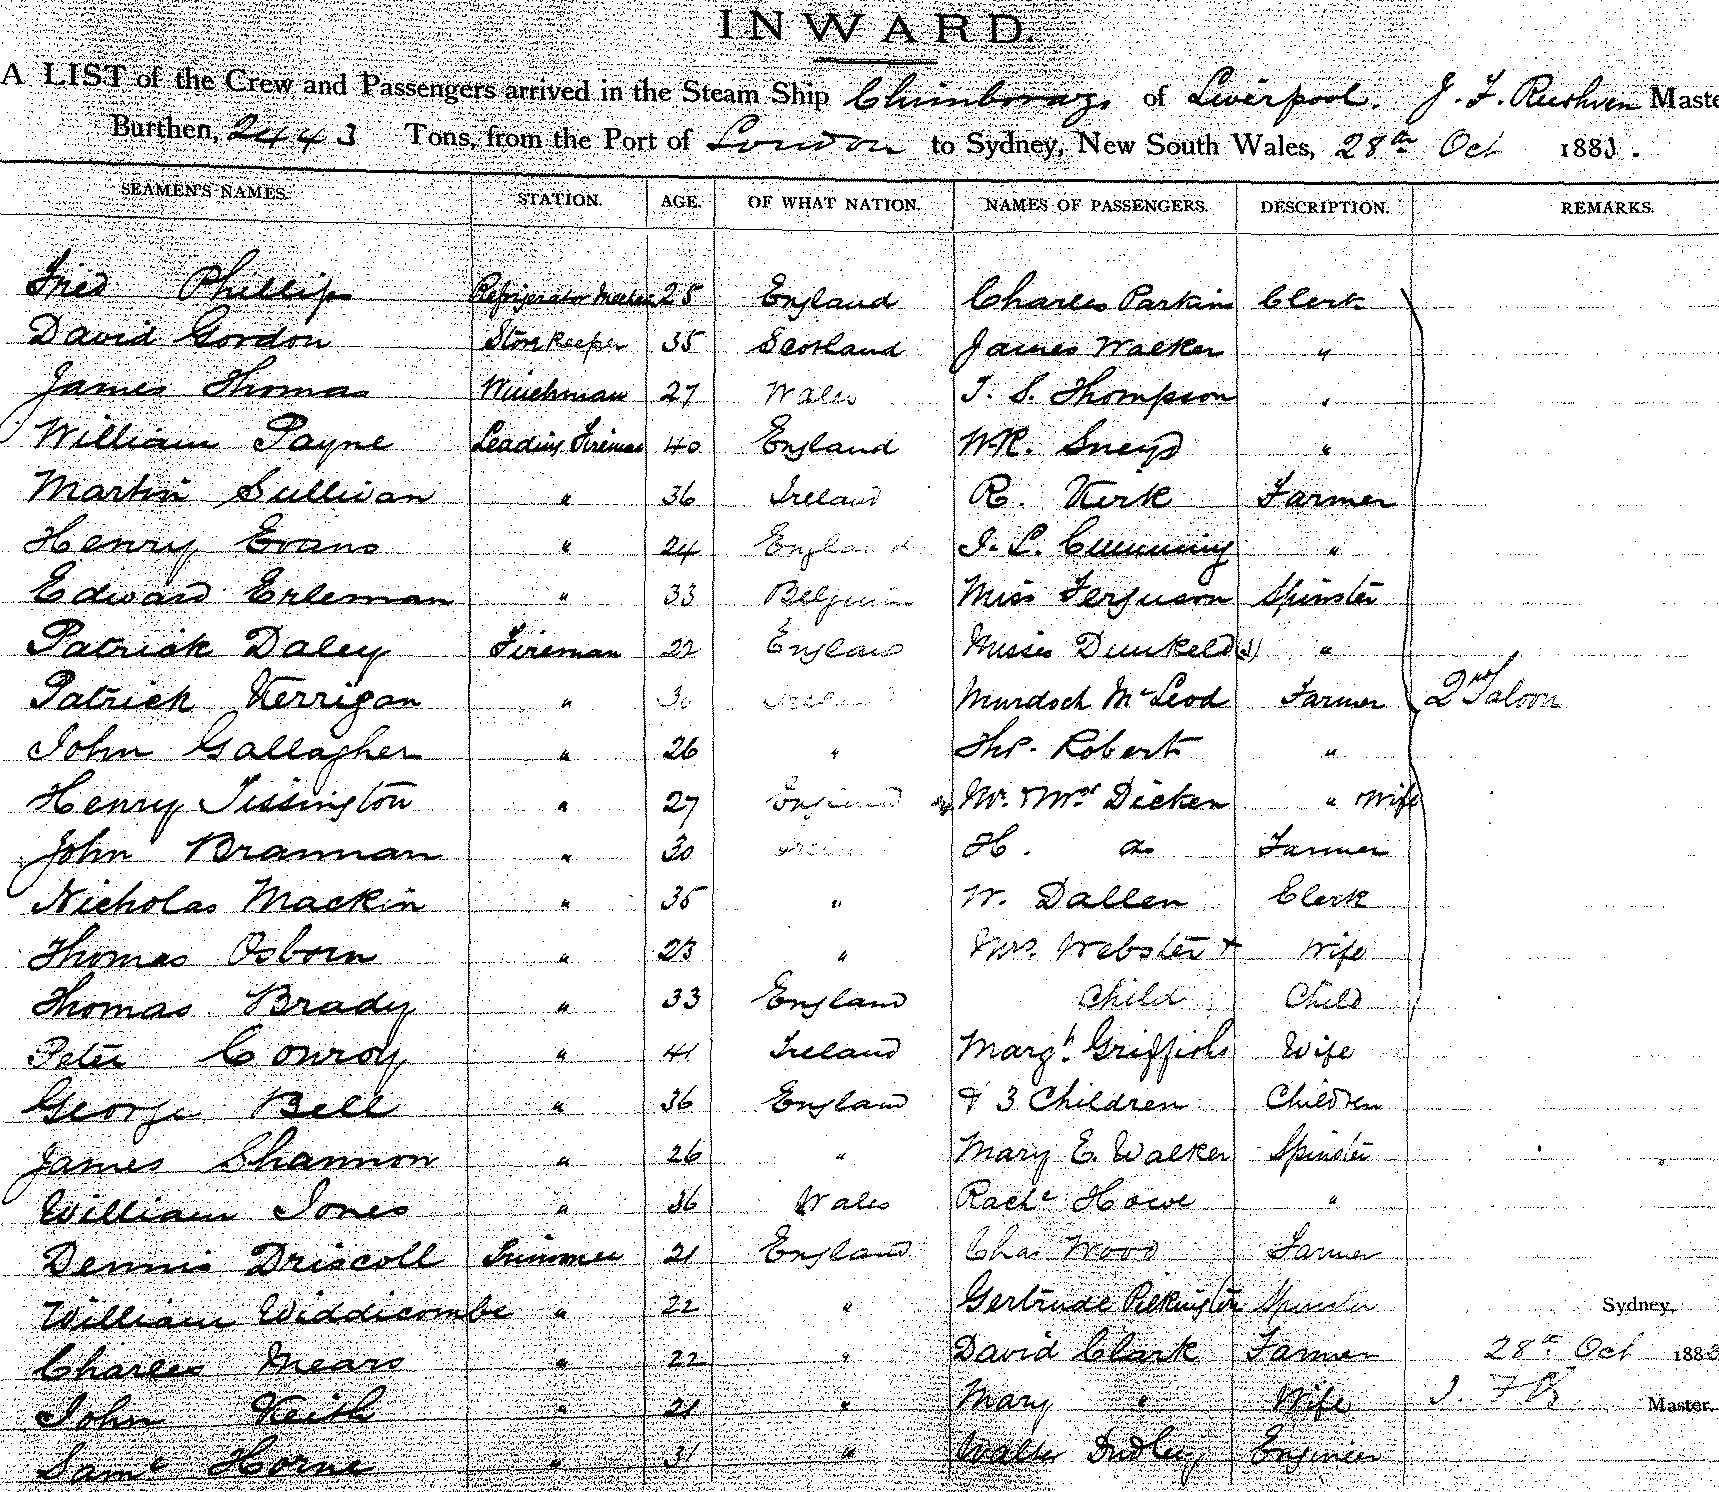 INWARD.
A LIST of the Crew and Passengers arrived in the Steam Ship Chimborazo of Liverpool. J. F. Ruthven Maste
Burthen, 2443 Tons, from the Port of London to Sydney, New South Wales, 28th Oct 1883.
SEAMEN'S NAMES. STATION. AGE. OF WHAT NATION. NAMES OF PASSENGERS. DESCRIPTION. REMARKS.
Fred Phillips Refrigerator 25 England Charles Parkin Clerk
David Gordon Storekeeper 35 Scotland James Walker "
James Thomas Winchman 27 Wales T. S. Thompson "
William Payne Leading Fireman 40 England Sneyd "
Martin Sullivan " 36 Ireland R. Kerk Farmer
Henry Evans " 24 England J. L. Cumming "
Edward Erleman " 33 Belgium Miss Ferguson Spinster
Patrick Daley Fireman 22 England Misses Dunkeld "
Patrick Kerrigan " 30 Ireland Murdoch McLeod Farmer 2nd Saloon
John Gallagher " 26 " Thos. Roberts "
Henry Tissington " 27 England Mr. & Mrs Dicken " Wife
John Brannan " 30 Ireland H. do Farmer
Nicholas Mackin " 35 " W. Dallen Clerk
Thomas Osborn " 23 " Mrs. Webster + Wife
Thomas Brady " 33 England Child Child
Peter Conroy " 41 Ireland Margt. Griffiths Wife
George Bell " 36 England & 3 Children Children
James Shannon " 26 " Mary E. Walker Spinster
William Jones " 36 Wales Rachl Howe "
Dennis Driscoll Trimmer 21 England Chas Wood Farmer
William Widdicombe " 22 " Gertrude Pilkington Spinster Sydney,
Charles Mears " 22 " David Clark Farmer 28th Oct 1883
John Keith " 21 " Mary " Wife J. F. R. Master.
Saml Horne " 31 " Walter Dudley Engineer